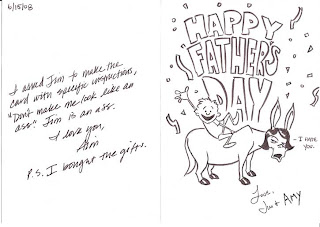 6/15/08
I asked Jim to make the
card with specific instructions,
"Don't make me look like an
ass." Jim is an ass.
I love you,
P.S. I bought the gifts.
HAPPY
FATHER'S
DAY
- I HATE
YOU.
Love,
Jim & AMY